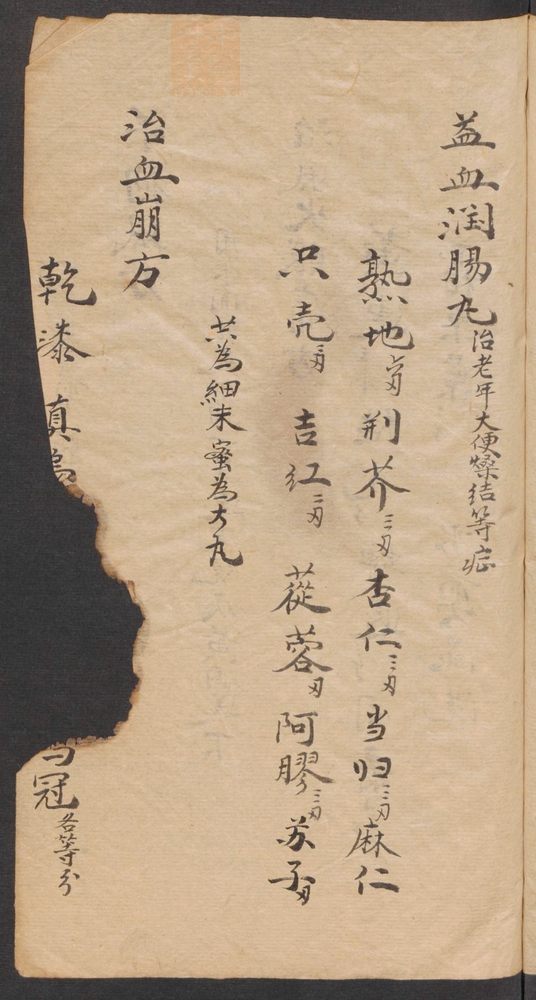 益血润肠丸治老年大便燥结等症
熟地 荆芥三刄杏仁三刄当归三刄麻仁
只壳 刄吉红二刄苁蓉刄阿膠三刄苏子刄
共為細末蜜為大丸
治血崩方
乾漆真 冠各等分